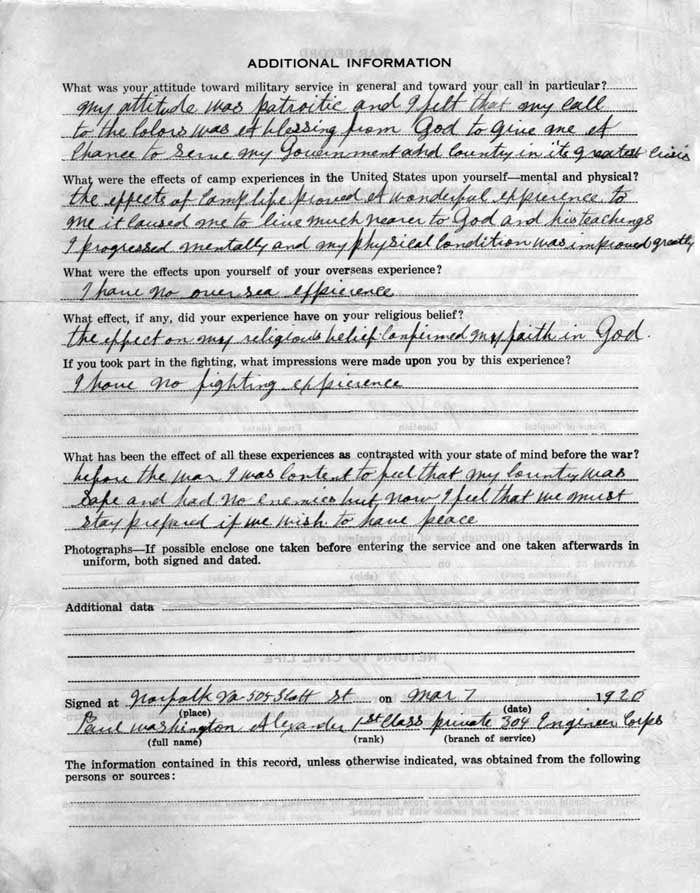 ADDITIONAL INFORMATION
What was your attitude toward military service in general and toward your call in particular?
My attitude was patroitic and I felt that my call
to the Colors was A blessing from God to give me A
Chance to serve my Government and Country in its greatest Crisis
What were the effects of camp experiences in the United States upon yourself—mental and physical?
the effects of Camp life proved A wonderful expierence to
me it Caused me to live much nearer to God and his teachings
I progressed mentally and my physical Condition was improved greatly
What were the effects upon yourself of your overseas experience?
I have no over sea expierence
What effect, if any, did your experience have on your religious belief?
the effect on my religious belief Confirmed my faith in God.
If you took part in the fighting, what impressions were made upon you by this experience?
I have no fighting expierence
What has been the effect of all these experiences as contrasted with your state of mind before the war?
before the war I was Content to feel that my County was
safe and had no enemies but now I feel that we must
stay prepared if we wish to have peace
Photographs—If possible enclose one taken before entering the service and one taken afterwards in
uniform, both signed and dated.
Additional data
Signed at Norfolk Va 505 Scott St on Mar 7 1920
(place) (date)
Paul Washington Alexander 1st Class private 304 Engineer Corps
(full name) (rank) (branch of service)
The information contained in this record, unless otherwise indicated, was obtained from the following
persons or sources: